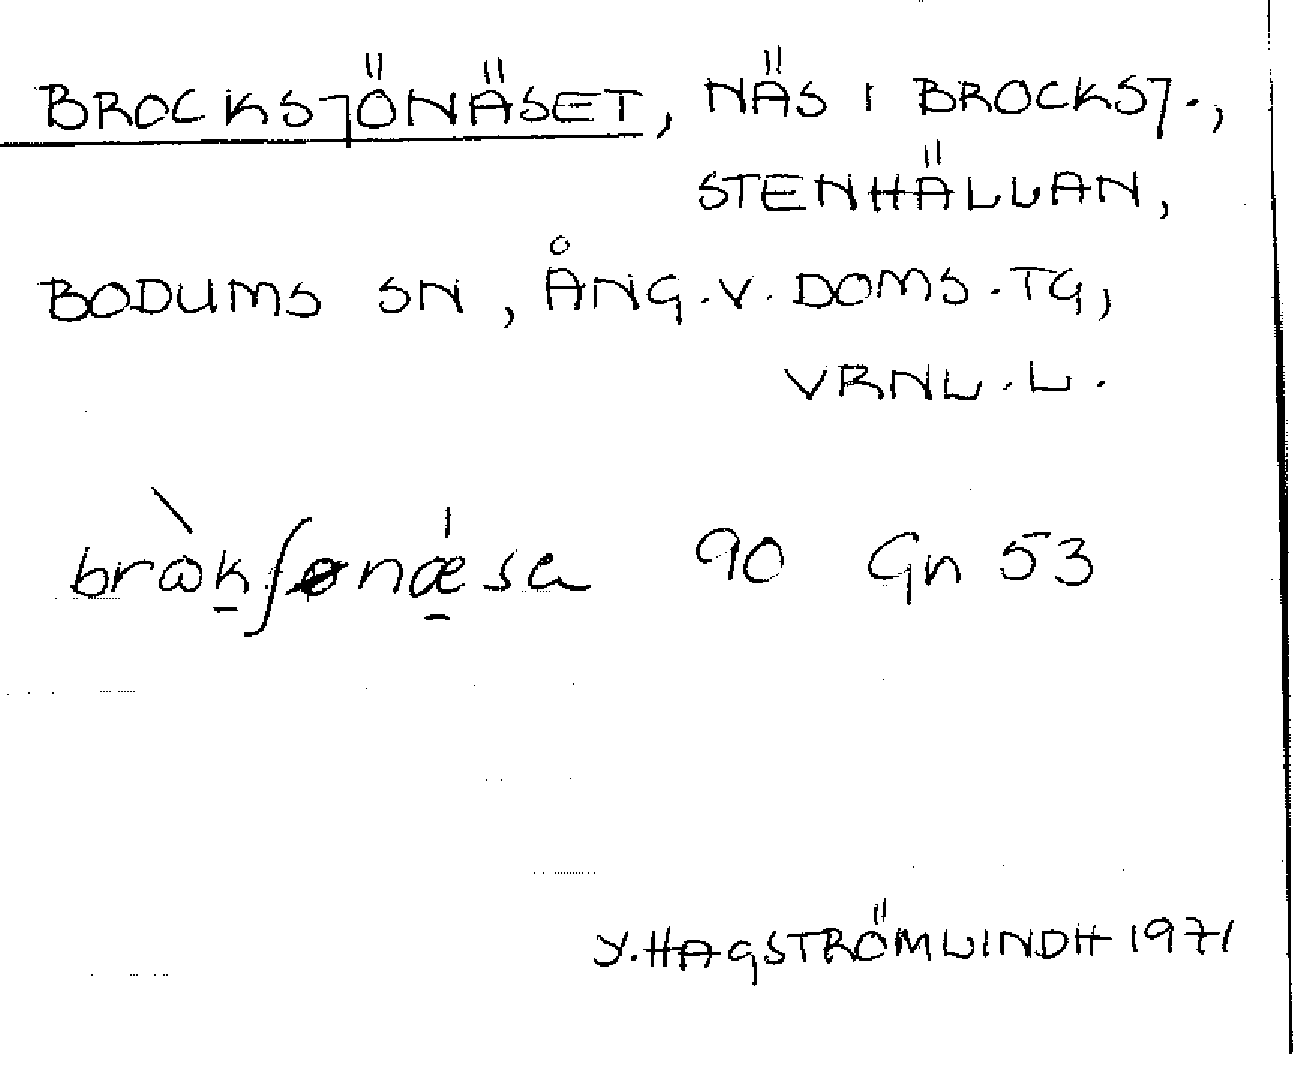 BROCKSJÖNÄSET, NÄS I BROCKSJ.,
STENHÄLLAN,
BODUMS SN, ÅNG.V.DOMS.TG,
VRNL.L.
bròk̠ʃønǽ̠sa 90 Gn 53
Y.HAGSTRÖMLINDH 1971